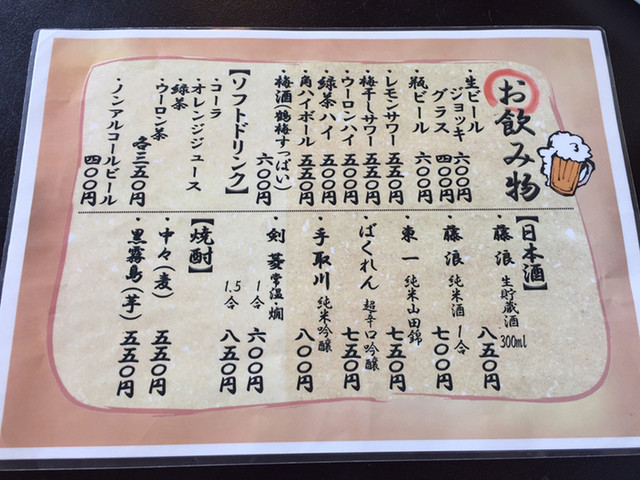 お飲み物
・生ビール
ジョッキ 六〇〇円
グラス 四〇〇円
・瓶ビール 六〇〇円
・レモンサワー 五五〇円
・梅干しサワー 五五〇円
・ウーロンハイ 五五〇円
・緑茶ハイ 五五〇円
・角ハイボール 五五〇円
・梅酒(鶴梅すっぱい) 六〇〇円
【ソフトドリンク】
・コーラ
・オレンジジュース
・緑茶
・ウーロン茶
各三五〇円
・ノンアルコールビール 四〇〇円
【日本酒】
・藤浪 生貯蔵酒 300ml 八五〇円
・藤浪 純米酒 1合 七〇〇円
・東一 純米山田錦 七五〇円
・ばくれん 超辛口吟醸 七五〇円
・手取川 純米吟醸 八〇〇円
・剣菱 常温・燗
1合 六〇〇円
1.5合 八五〇円
【焼酎】
・中々(麦) 五五〇円
・黒霧島(芋) 五五〇円